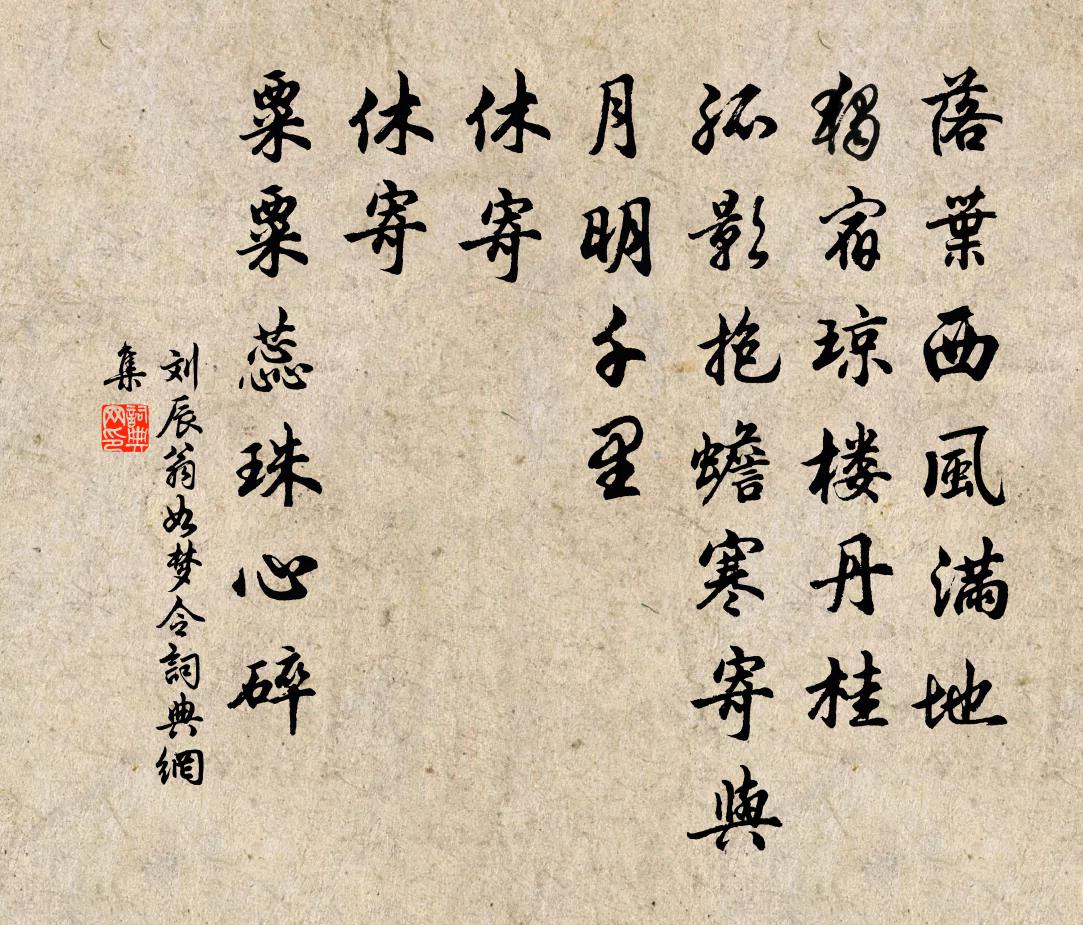 落葉西風滿地
獨宿琼楼丹桂
孤影抱蟾寒寄與
月明千里
休寄
休寄
粟粟蕊珠心碎
刘辰翁如梦令詞典網
集
詞典网印